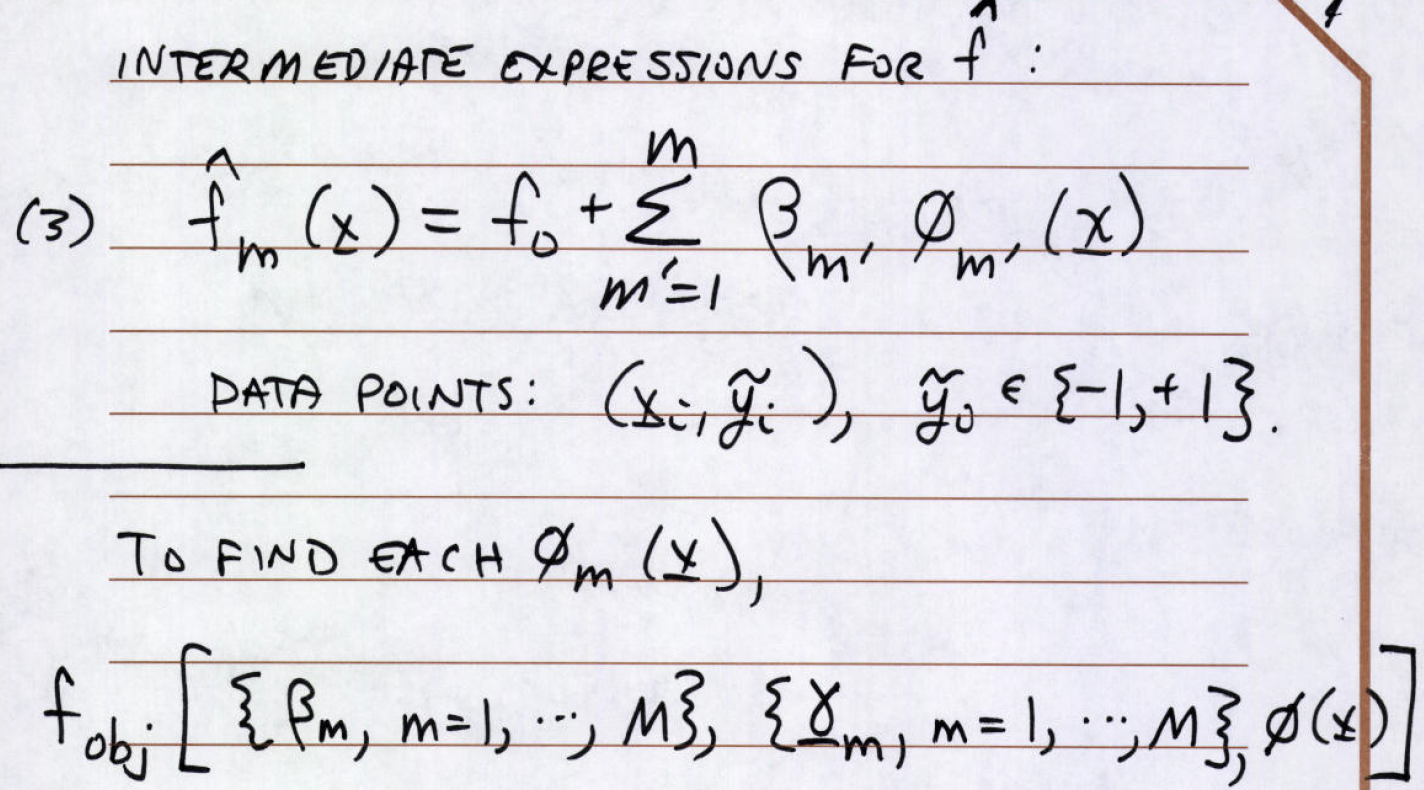 INTERMEDIATE EXPRESSIONS FOR f̂ :
(3) f̂_m (x̲) = f_0 + Σ_{m'=1}^{m} β_{m'} φ_{m'} (x̲)
DATA POINTS: (x̲_i, ỹ_i), ỹ_i ∈ {-1, +1}.
TO FIND EACH φ_m (x̲),
f_obj [ {β_m, m=1, ..., M}, {γ̲_m, m=1, ..., M}, φ(x̲) ]